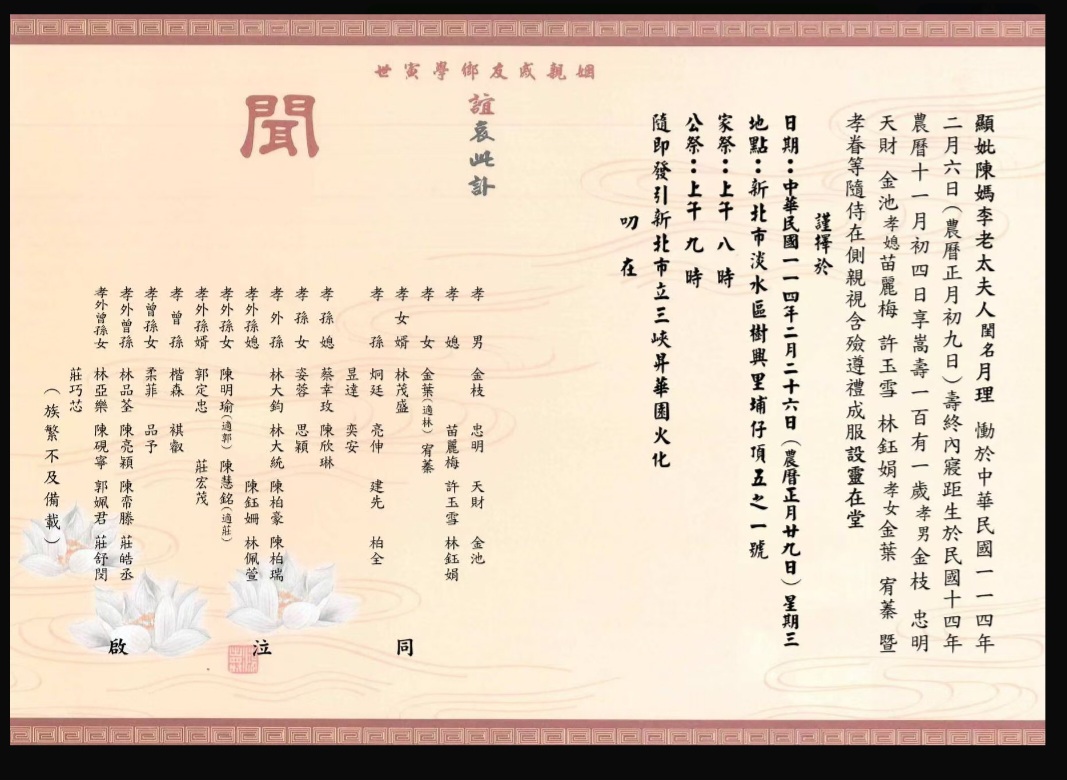 顯妣陳媽李老太夫人閨名月理 慟於中華民國一一四年
二月六日（農曆正月初九日）壽終內寢距生於民國十四年
農曆十一月初四日享嵩壽一百有一歲孝男金枝 忠明
天財 金池孝媳苗麗梅 許玉雪 林鈺娟孝女金葉 宥蓁 暨
孝眷等隨侍在側親視含殮遵禮成服設靈在堂
謹擇於
日期：中華民國一一四年二月二十六日（農曆正月廿九日）星期三
地點：新北市淡水區樹興里埔仔頂五之一號
家祭：上午 八 時
公祭：上午 九 時
隨即發引新北市立三峽昇華園火化
叨在
世寅學鄉友戚親姻
誼哀此訃
聞
孝男 金枝 忠明 天財 金池
孝媳 苗麗梅 許玉雪 林鈺娟
孝女 金葉（適林） 宥蓁
孝女婿 林茂盛
孝孫 炯廷 亮伸 建先 柏全
昱達 奕安
孝孫媳 蔡幸玫 陳欣琳
孝孫女 姿蓉 思穎
孝外孫 林大鈞 林大統 陳柏豪 陳柏瑞
孝外孫媳 陳鈺姍 林佩萱
孝外孫女 陳明瑜（適郭） 陳慧銘（適莊）
孝外孫婿 郭定忠 莊宏茂
孝曾孫 楷森 祺叡
孝曾孫女 柔菲 品予
孝外曾孫 林品荃 陳亮穎 陳帟滕 莊皓丞
孝外曾孫女 林亞樂 陳硯寧 郭姵君 莊舒閔
莊巧芯
（族繁不及備載）
同 泣 啟